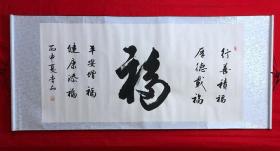 行善積福
厚德載福
福
平安增福
健康添福
丙申夏